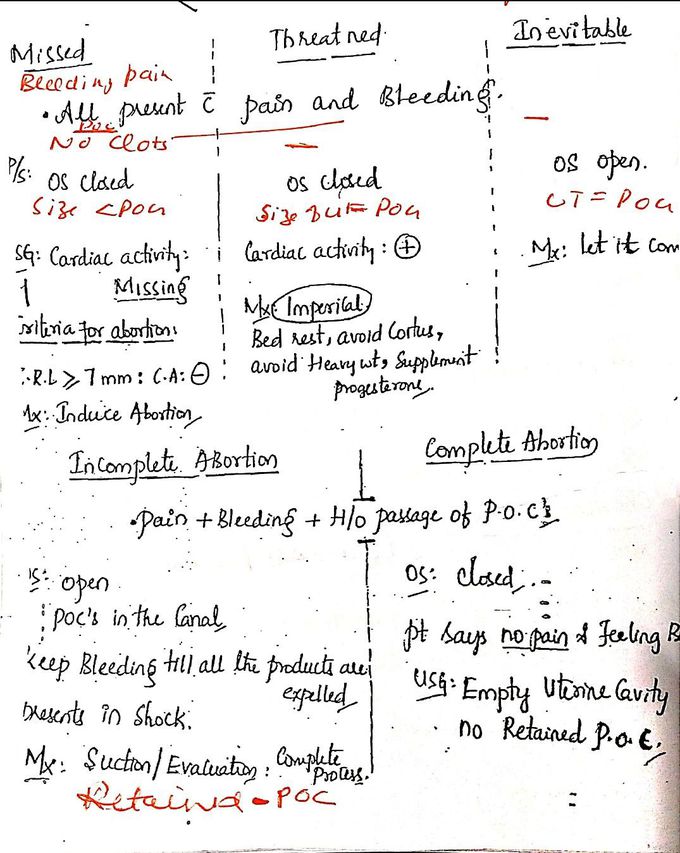 Missed
Threatned
Inevitable
Bleeding pain
• All present c̄ pain and Bleeding.
POC
No Clots
P/s: OS closed
OS closed
OS open.
Size < POG
Size = POG
UT = POG
SG: Cardiac activity:
Missing
Cardiac activity: ⊕
Mx: let it com
riteria for abortion:
Mx: Imperical
Bed rest, avoid Coitus,
avoid Heavy wt, Supplement
progesterone.
.R.L ≥ 7mm: C.A: ⊖
Mx: Induce Abortion
Incomplete Abortion
Complete Abortion
• Pain + Bleeding + H/o passage of P.O.C's
S: open
OS: closed
POC's in the Canal
pt says no pain & Feeling B
keep Bleeding till all the products are
expelled
USG: Empty Uterine Cavity
no Retained P.O.C.
presents in Shock.
Mx: Suction/Evaluation: Complete
Process.
Retained - POC